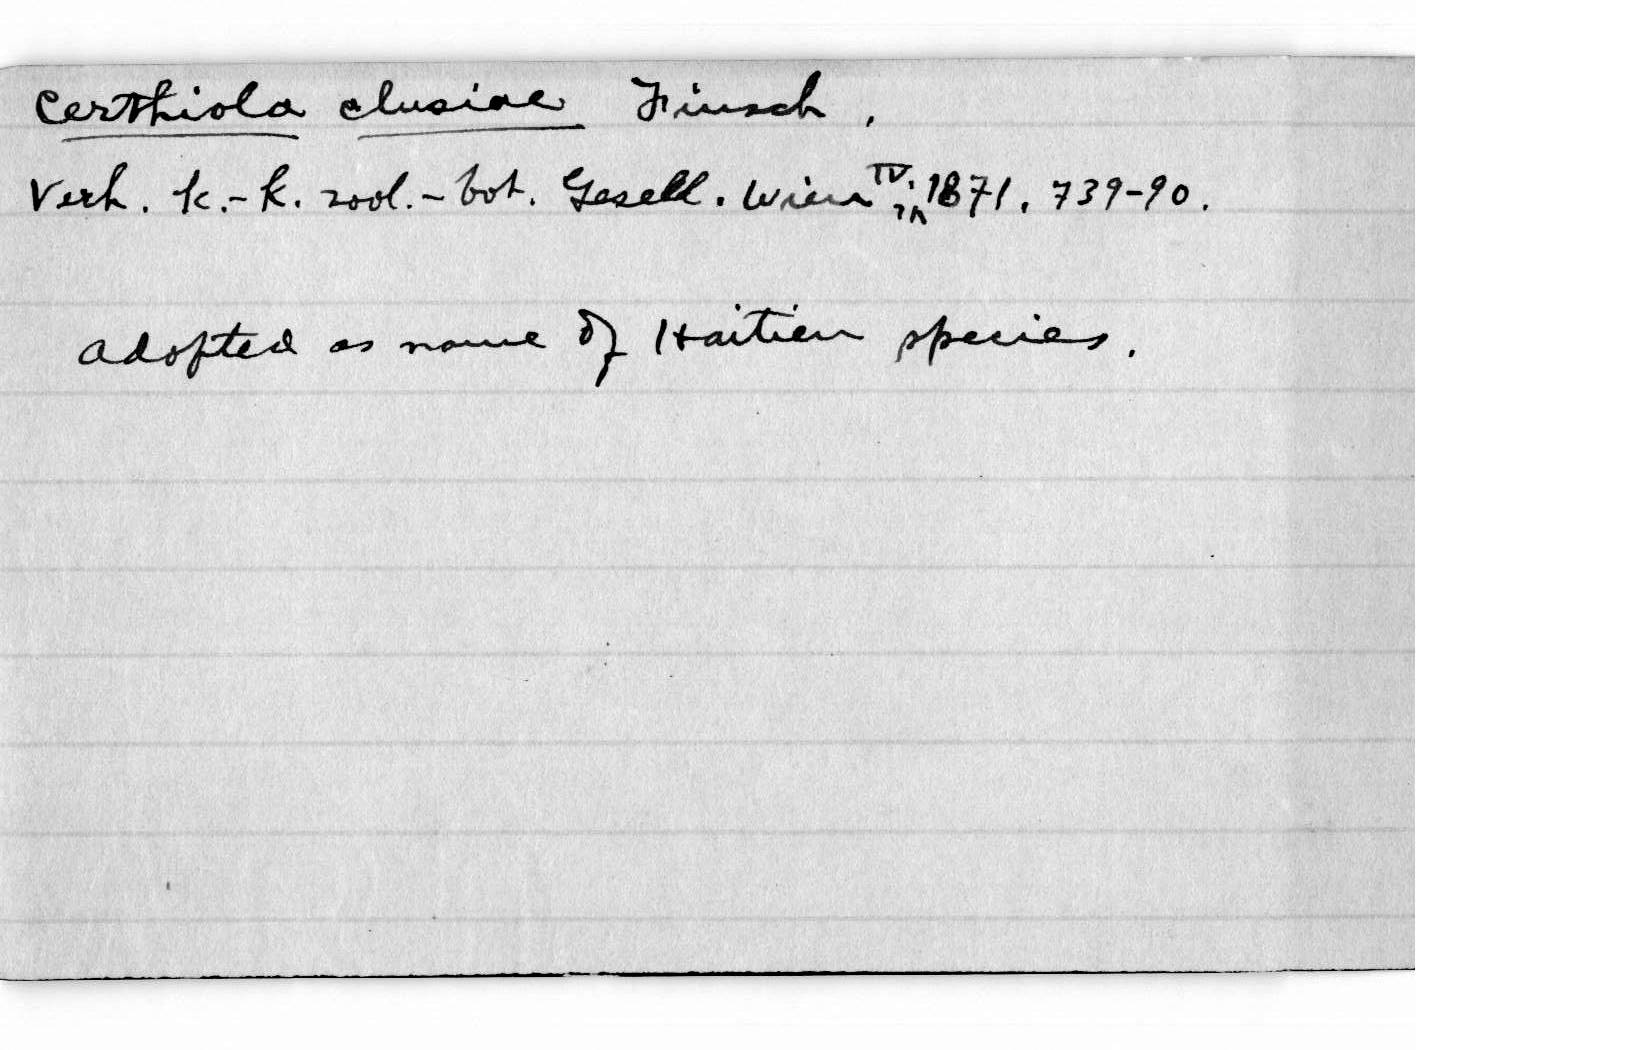 Certhiola elusiae Finsch.
Verh. k.-k. zool.-bot. Gesell. Wien IV. 1871, 739-90.
Adopted as name of Haitien species.